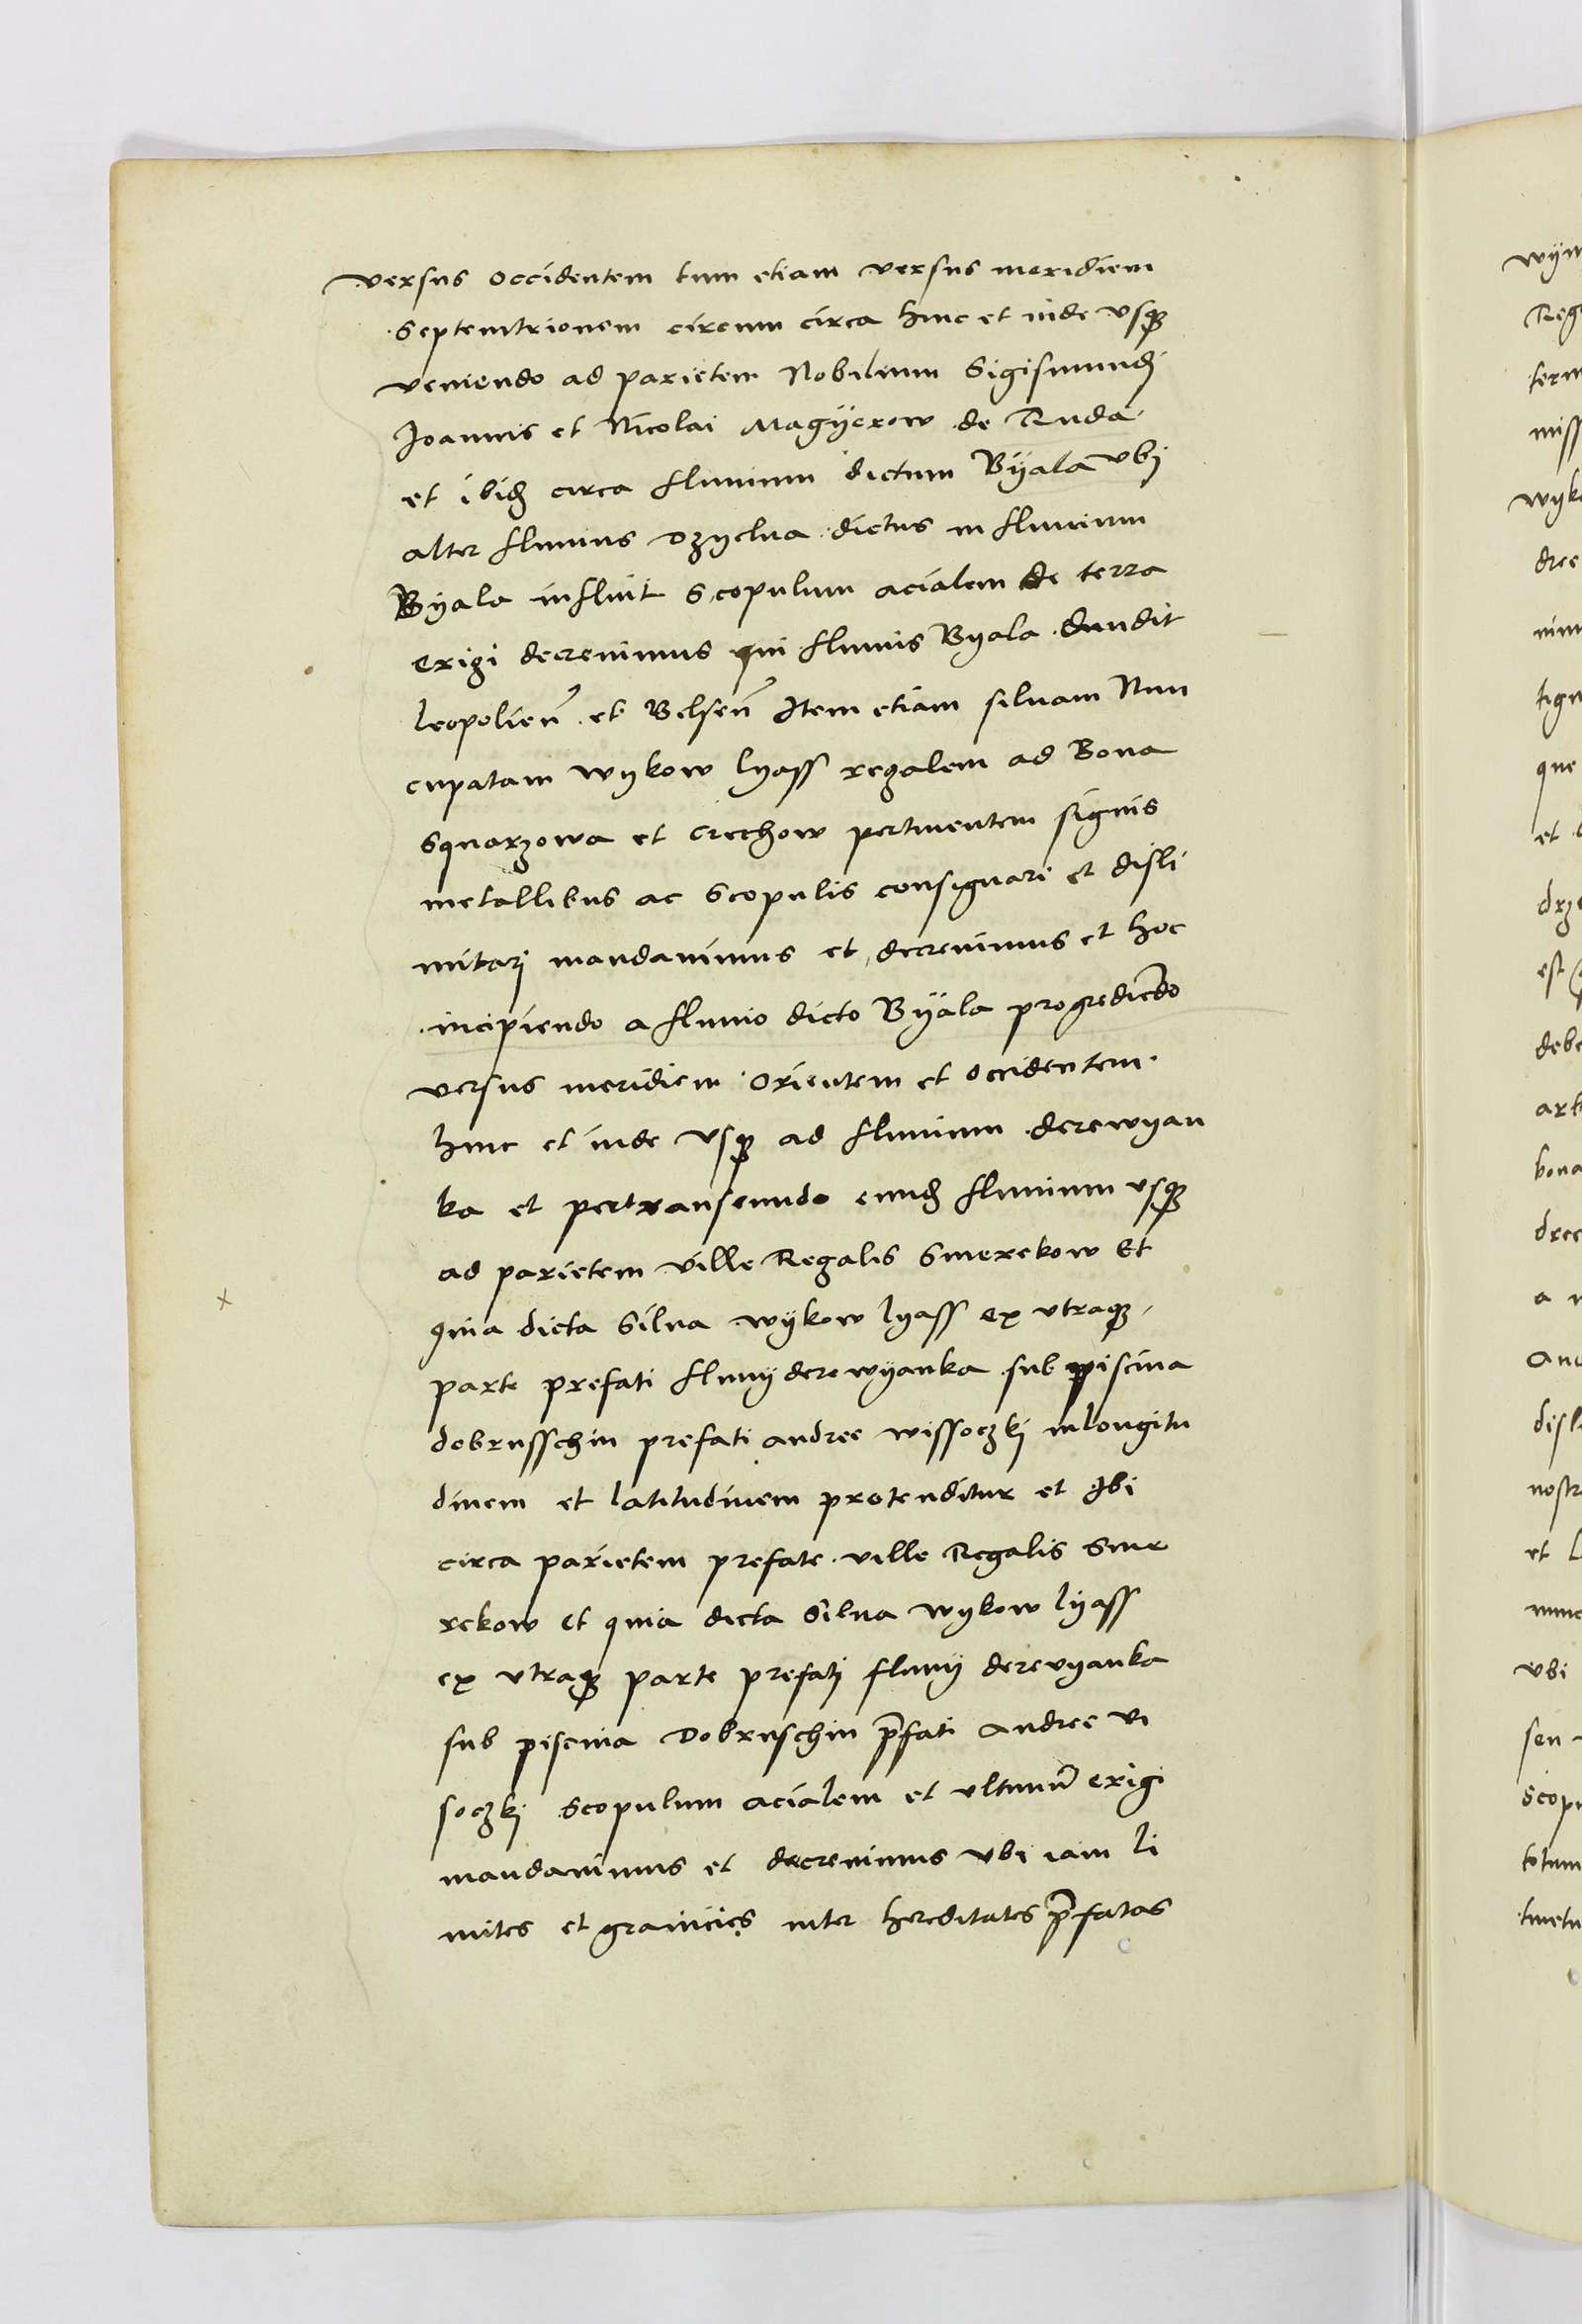 versus occidentem tum etiam versus meridiem
Septemtrionem circum circa hinc et inde vsq3
veniendo ad parietem Nobilium Sigismundj
Joannis et Nicolai Magÿerow de Ruda
et ibid3 circa fluuium dictum Bÿala vbj
alter fluuius Dzyclna dictus in fluuium
Bÿala influit Scopulum acialem de terra
erigi decreuimus qui fluuis Byala diuidit
leopolien̄ et Belsen̄ Item etiam siluam Nun
cupatam wykow lyass regalem ad Bona
Squarzowa et Crechow pertinentem signis
metallibus ac Scopulis consignari et disli
mitarj mandauimus et decreuimus et hoc
incipiendo a fluuio dicto Bÿala progrediēdo
versus meridiem Orientem et occidentem
hinc et inde vsq3 ad fluuium derewyan
ka et pertranseundo eund3 fluuium vsq3
ad parietem ville Regalis Smerekow Et
quia dicta Silua wykow lyass ex vtraq3
parte prefati fluuij derewyanka sub piscina
dobrusschin prefati andree wissoczkj in longitu
dinem et latitudinem protenditur et Ibi
circa parietem prefate ville Regalis Sme
rekow et quia dicta Silua wykow lyass
ex vtraq3 parte prefatj fluuij derevyanka
sub piscina Dobruschin p̄fati Andree vi
soczkj Scopulum acialem et vltimū erigi
mandauimus et decreuimus vbi iam li
mites et granicies inter hereditates p̄fatas